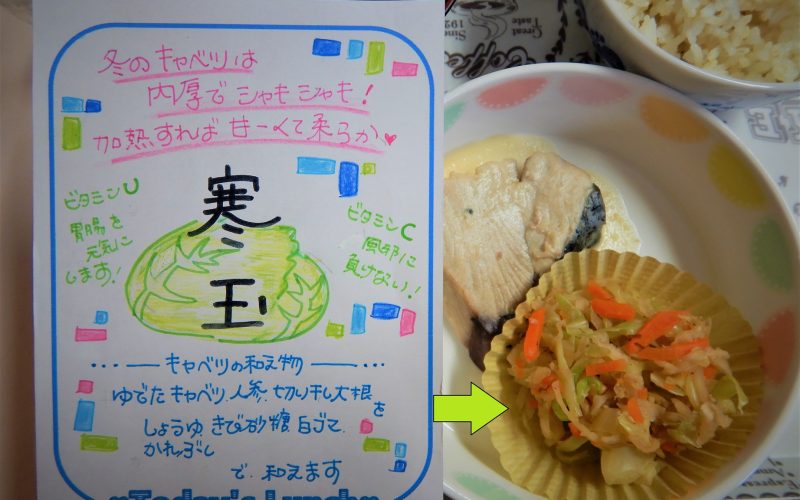 冬のキャベツは
内厚でシャキシャキ!
加熱すれば甘ーくて柔らか♥
寒玉
ビタミンU
胃腸を
元気に
します!
ビタミンC
風邪に
負けない!
キャベツの和え物
ゆでたキャベツ、人参、切り干し大根を
しょうゆ きび砂糖 白ゴマ
かつおぶし
で和えます
Today's Lunch
Great
Taste
Since
192
Coffee